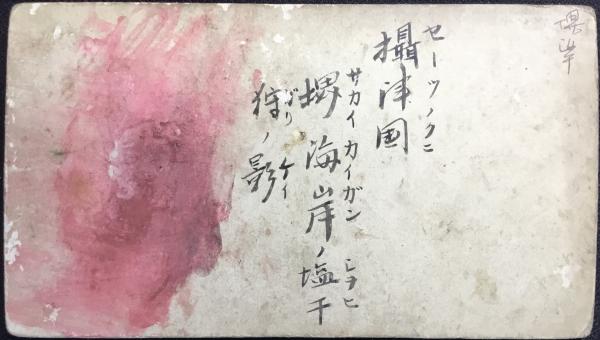 堺岸
セーツノクニ
攝津国
サカイ カイガン シヲヒ
堺海岸ノ塩干
がり ケイ
狩ノ影